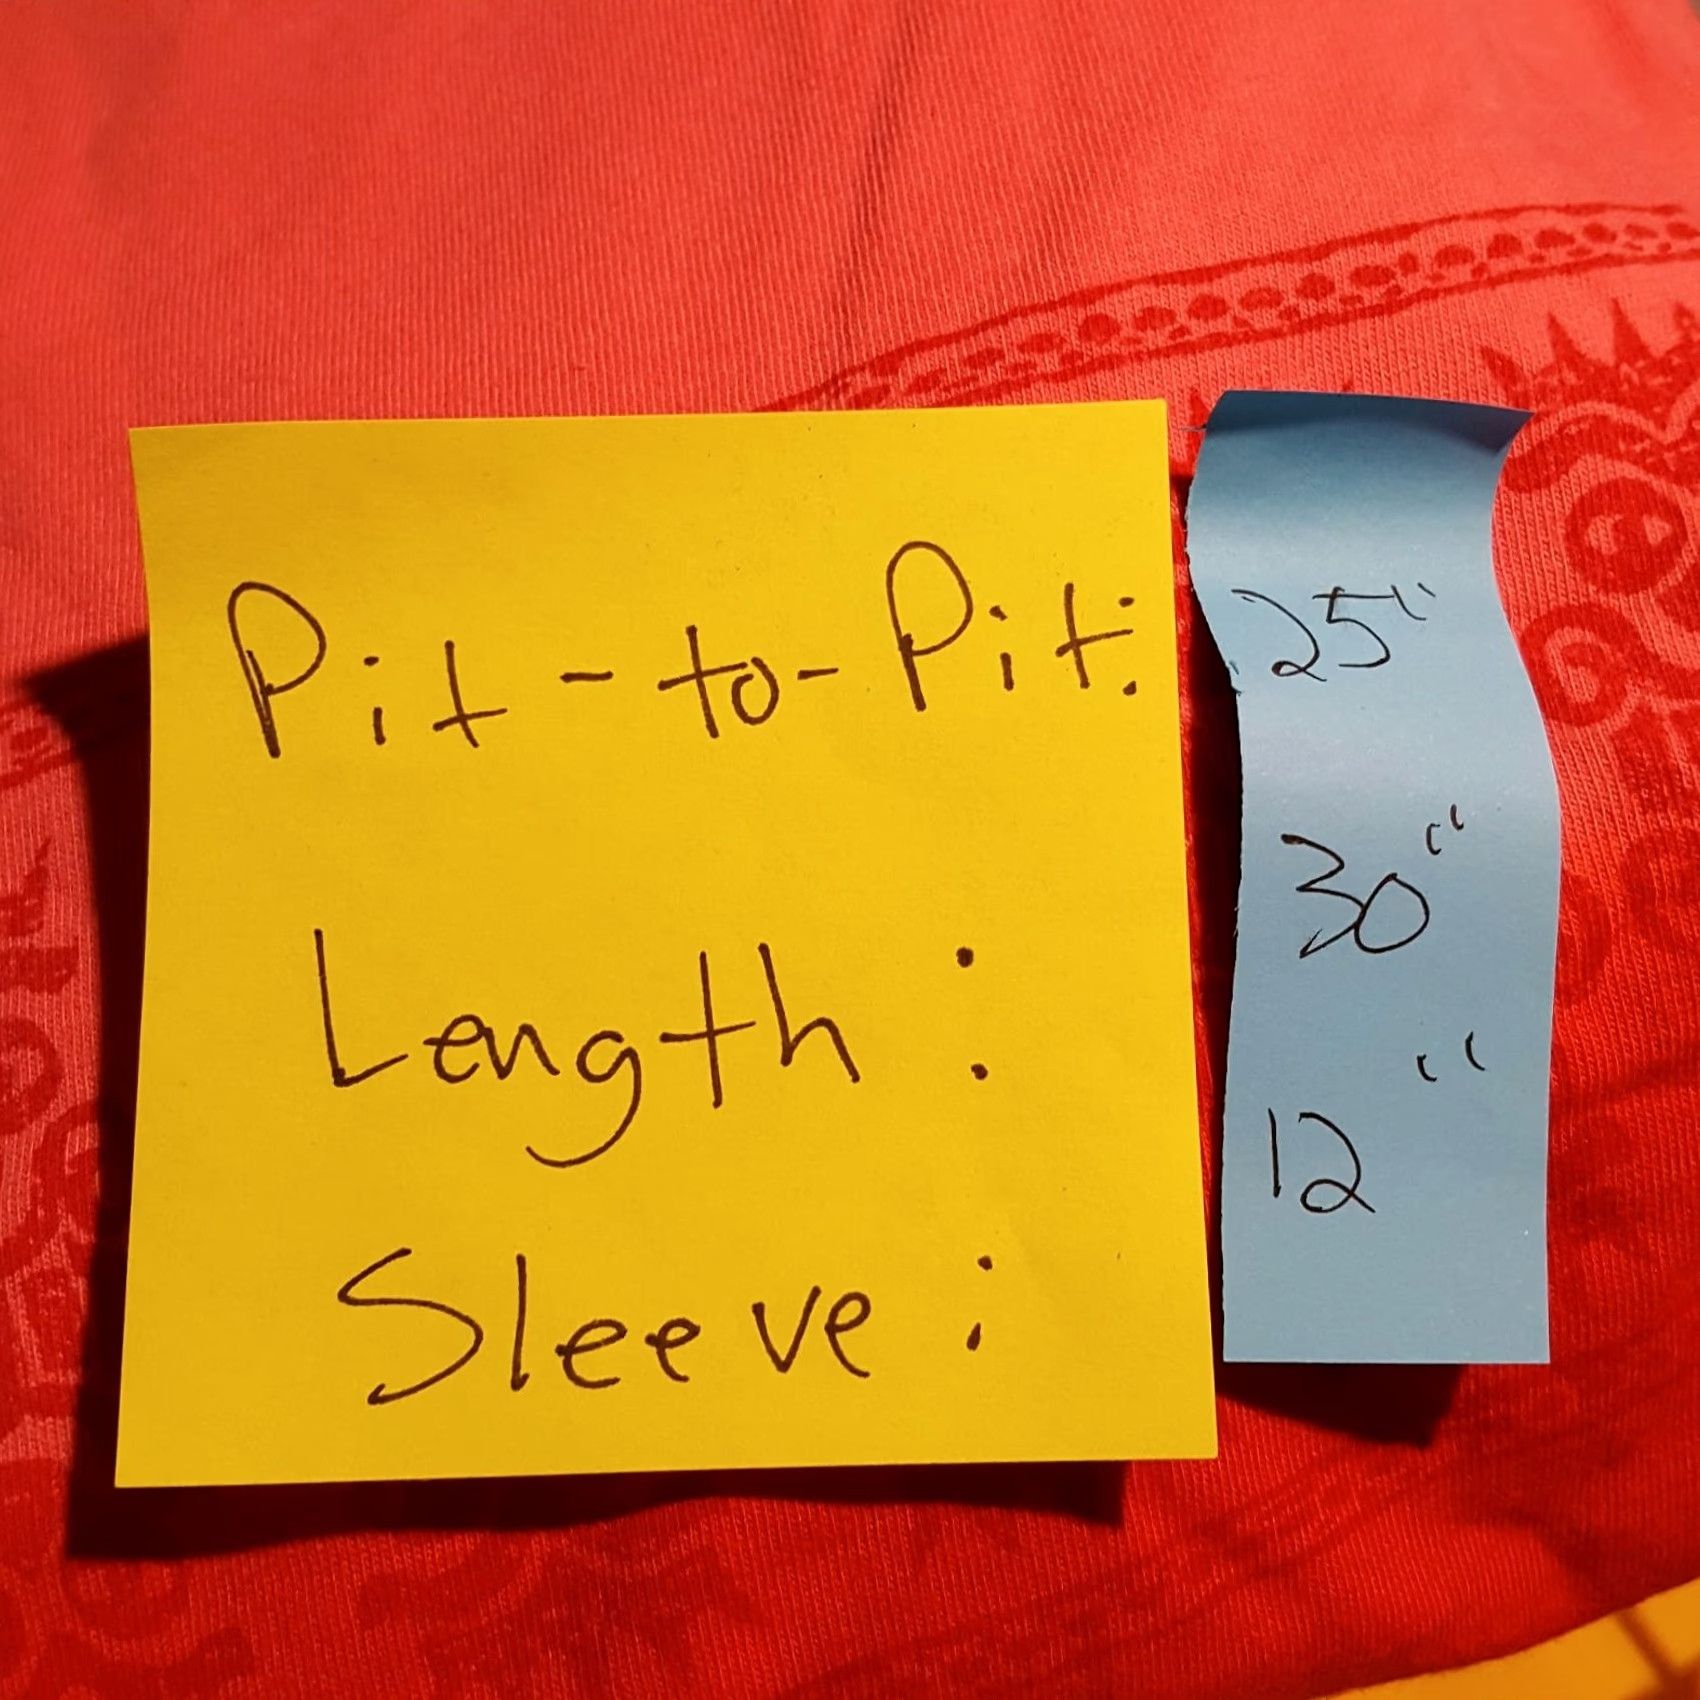 Pit-to-Pit: 25"
Length: 30"
Sleeve: 12"